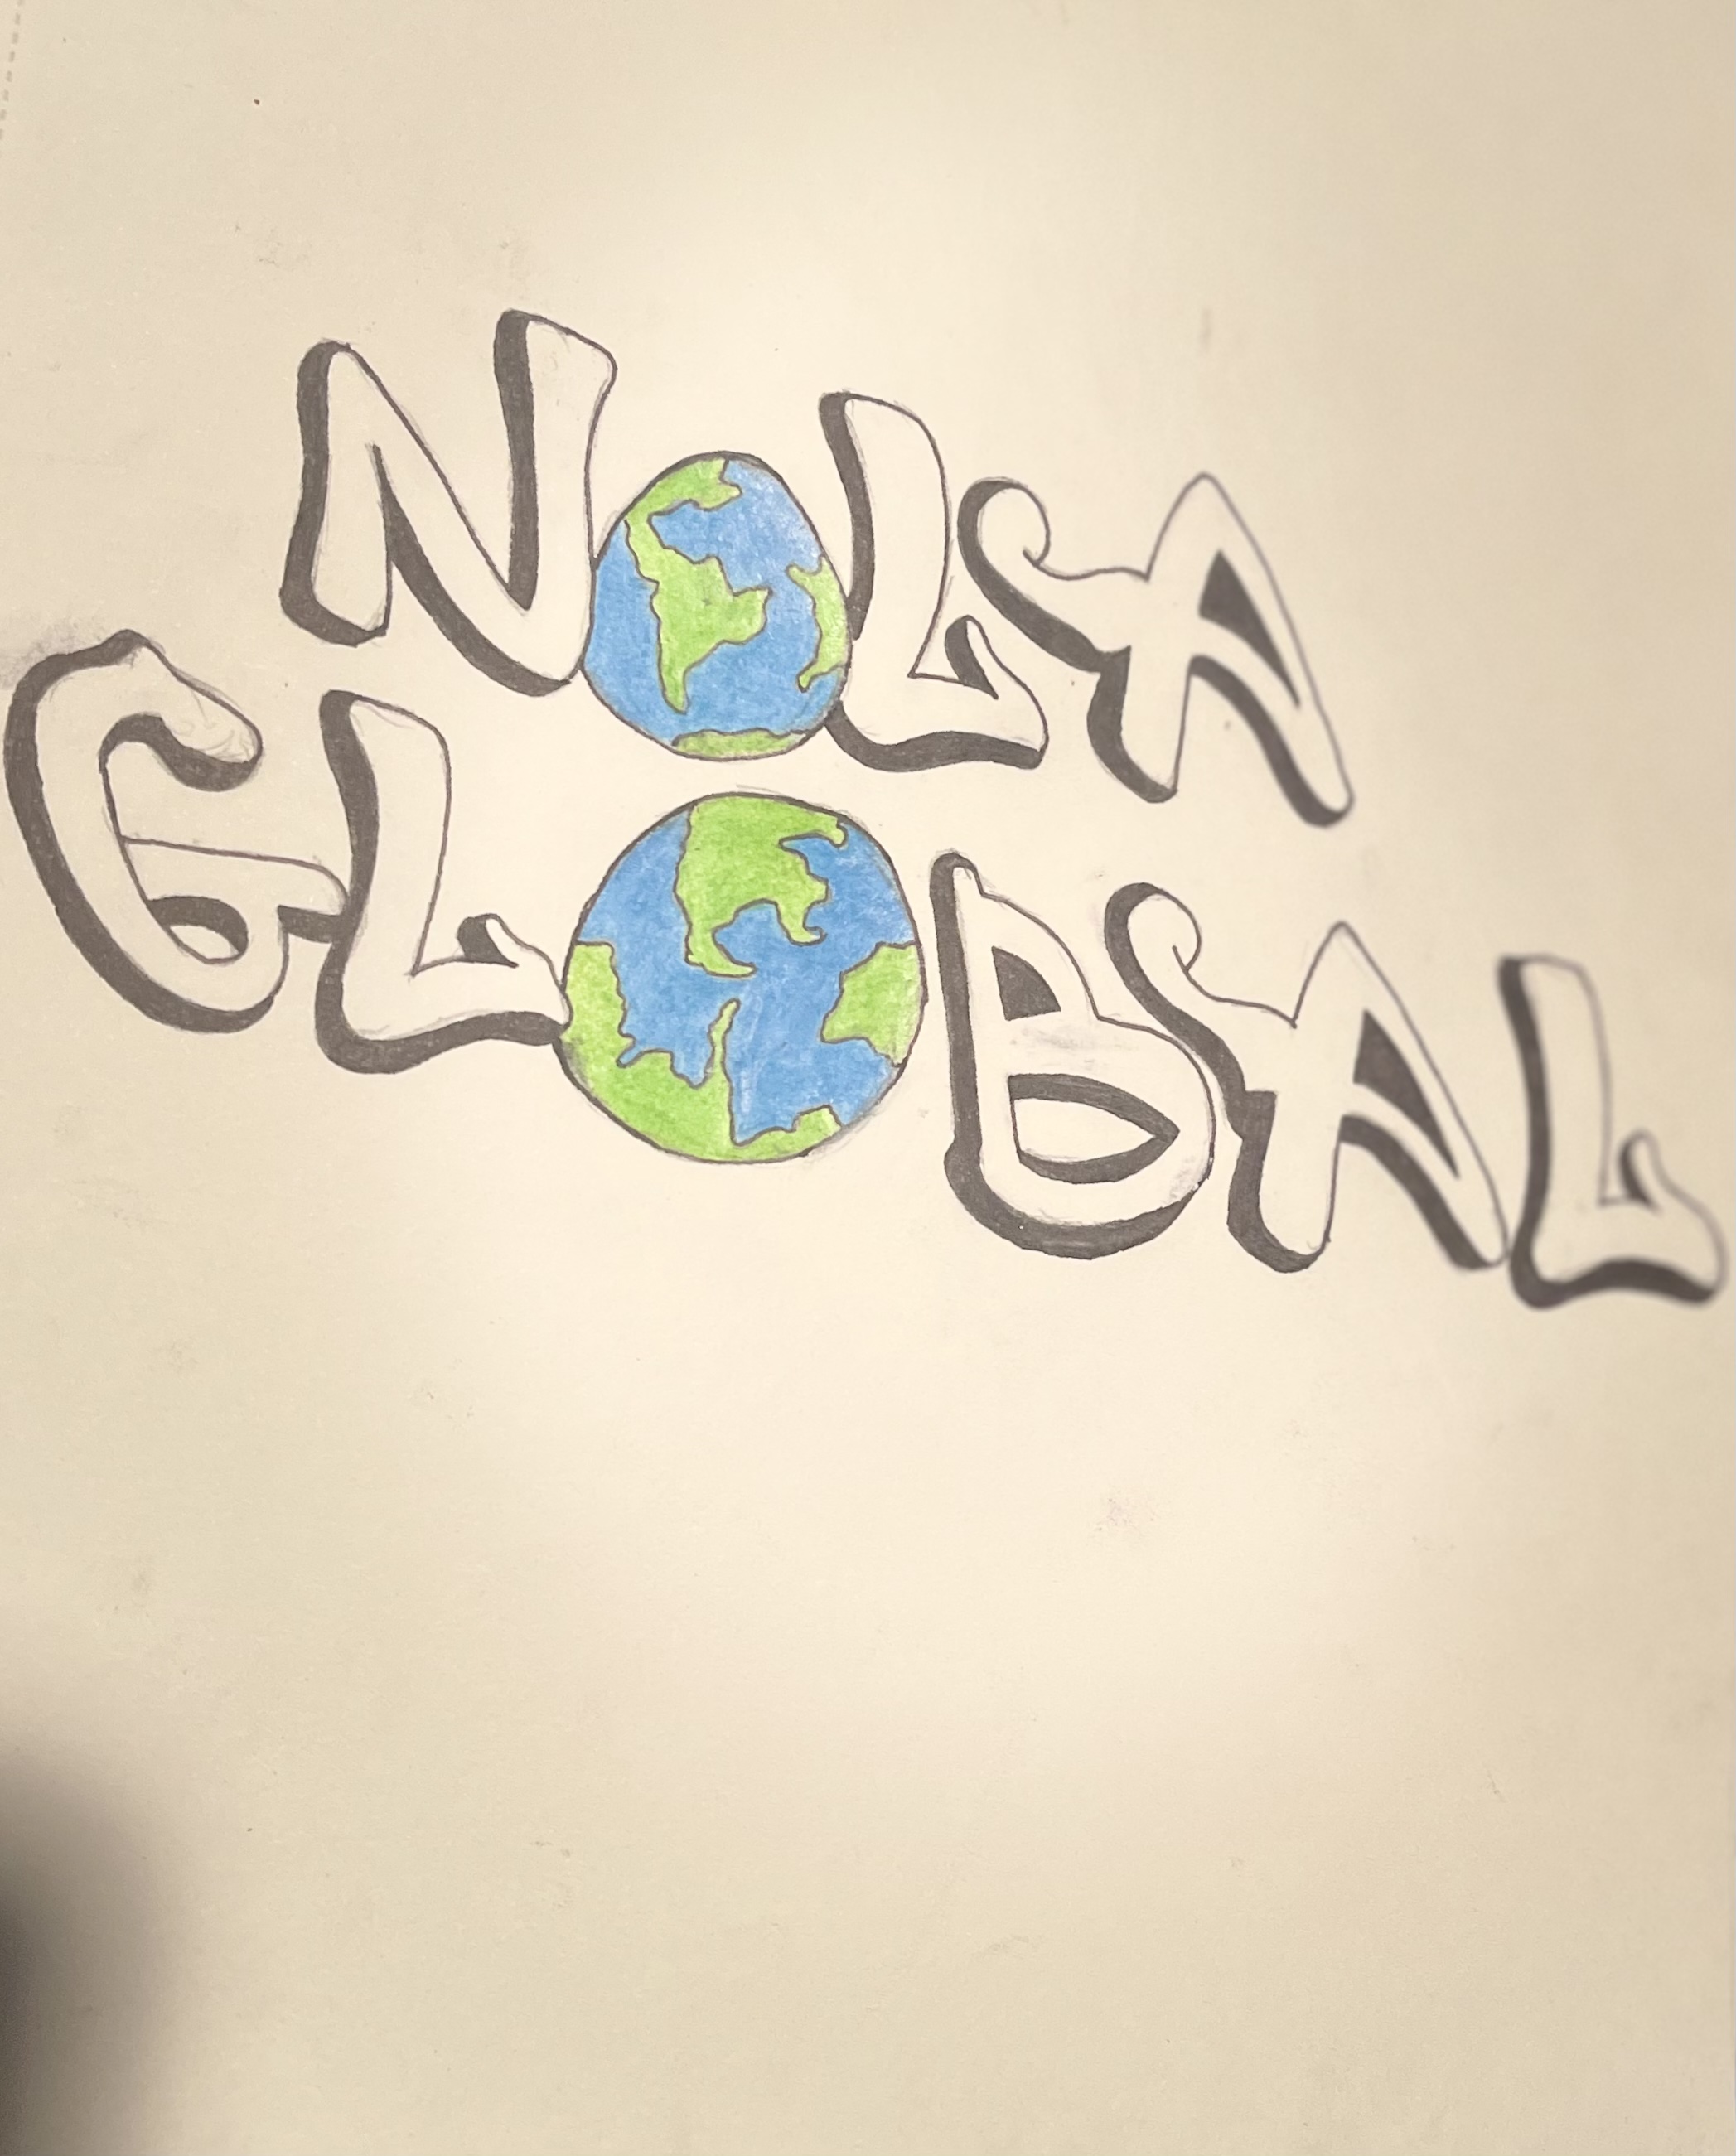 NOLA
GLOBAL